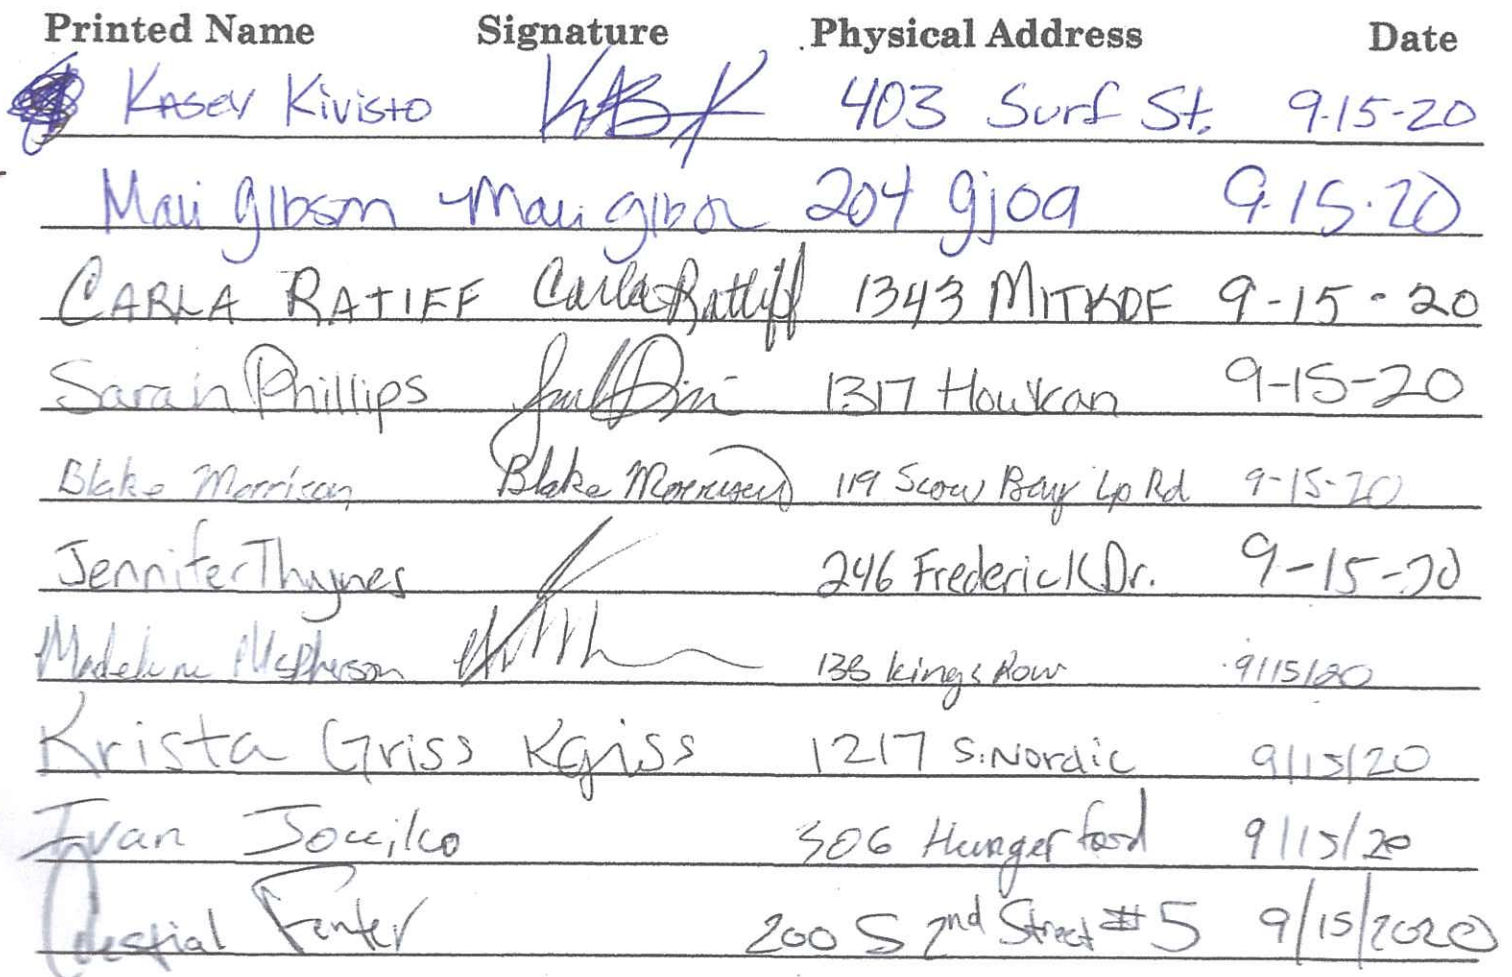 Printed Name Signature Physical Address Date
Kasey Kivisto 403 Surf St. 9-15-20
Maui gibson Maui gibson 204 gjoa 9.15.20
CARLA RATIFF Carla Ratliff 1343 MITKOF 9-15-20
Sarah Phillips 1317 Howkan 9-15-20
Blake Morrison Blake Morrison 119 Scow Bay Lp Rd 9-15-20
Jennifer Thynes 246 Frederick Dr. 9-15-20
Madeleine McPherson Kings Row 9/15/20
Krista Griss Kgriss 1217 S. Nordic 9/15/20
Ivan 506 Hungerford 9/15/20
Celestial Fenter 200 S 2nd Street #5 9/15/2020